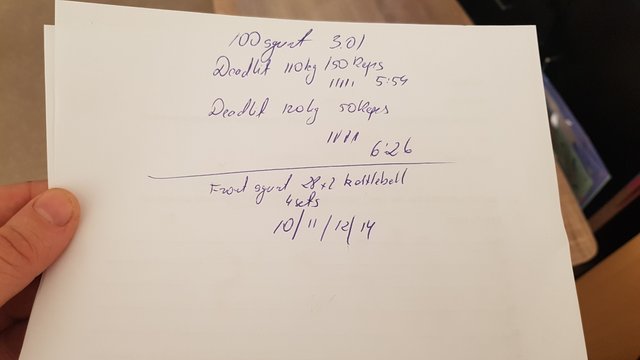 100 squat 3.01
Deadlift 110kg 50 Reps
||||| 5:54
Deadlift 120kg 50 Reps
|||||
6:26
Front squat 28x2 kettlebell
4 sets
10/11/12/14